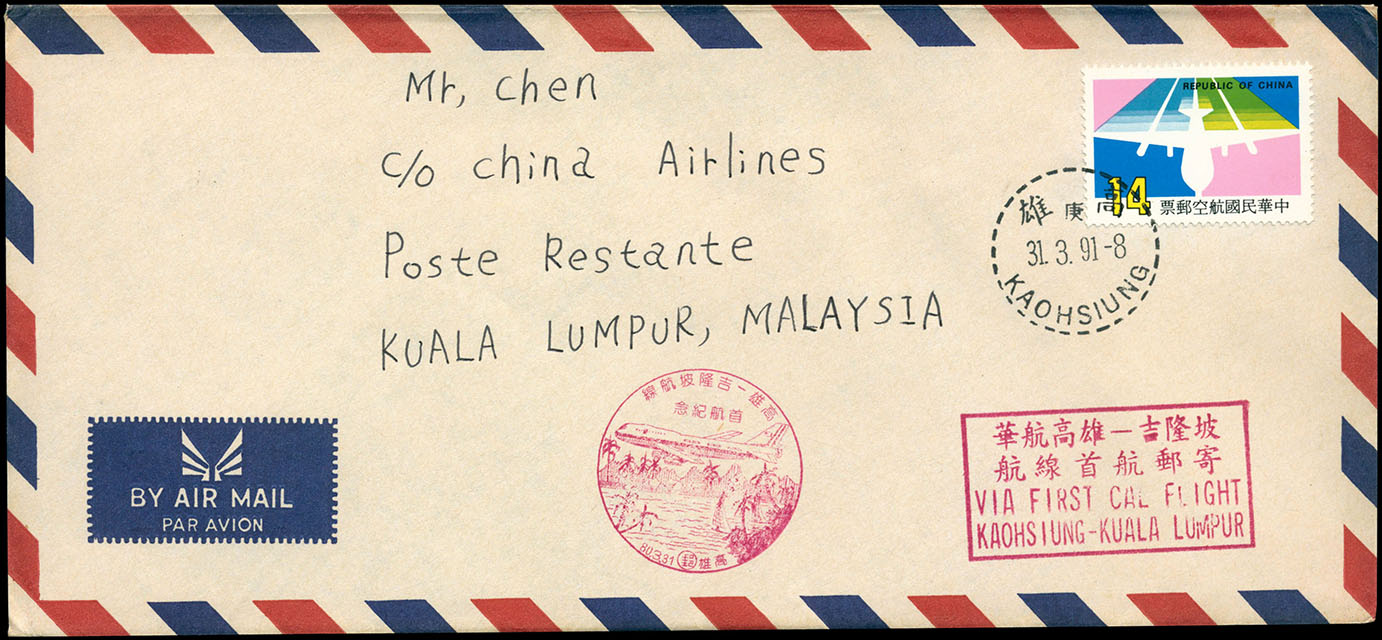 Mr, chen
c/o china Airlines
Poste Restante
KUALA LUMPUR, MALAYSIA
REPUBLIC OF CHINA
14
票郵空航國民華中
雄 庚 高
31. 3. 91-8
KAOHSIUNG
BY AIR MAIL
PAR AVION
線航坡隆吉－雄高
念紀航首
80.3.31 郵 雄高
華航高雄－吉隆坡
航線首航郵寄
VIA FIRST CAL FLIGHT
KAOHSIUNG-KUALA LUMPUR